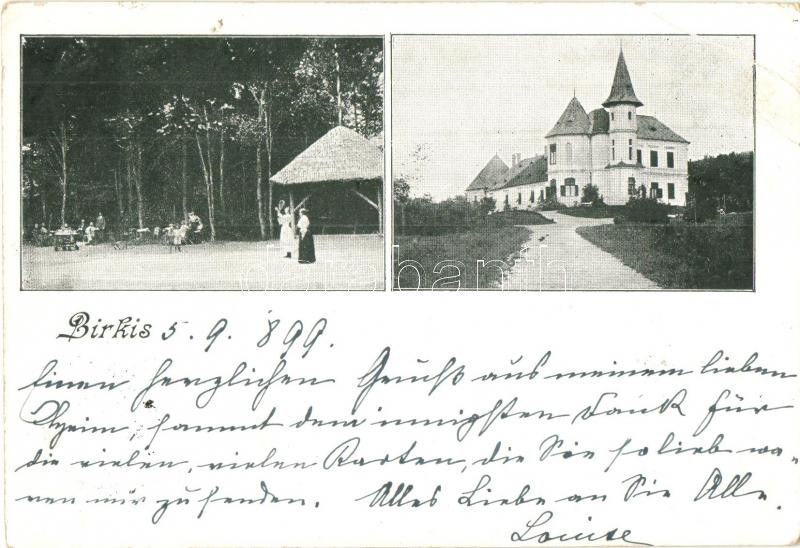 Birkis 5. 9. 899.
Einen herzlichen Gruß aus meinem lieben
Heim, sammt dem innigsten Dank für
die vielen, vielen Karten, die Sie so lieb wa-
ren mir zu senden. Alles Liebe an Sie Alle.
Louise
darabanth